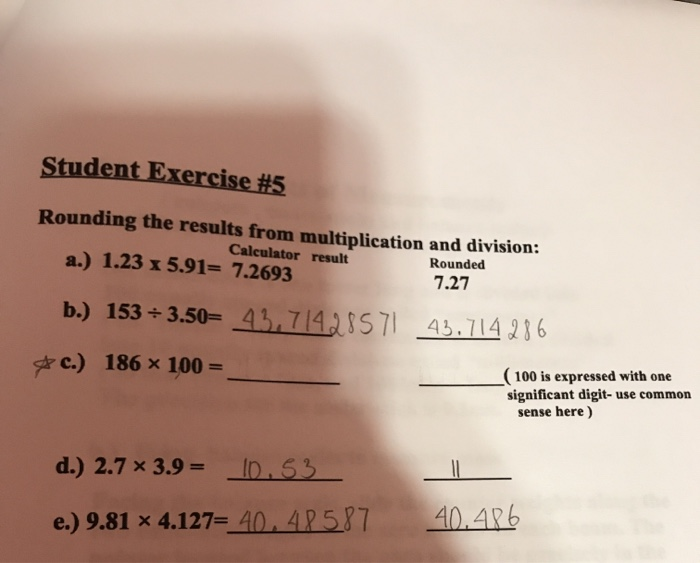 Student Exercise #5
Rounding the results from multiplication and division:
Calculator result Rounded
a.) 1.23 x 5.91= 7.2693 7.27
b.) 153 ÷ 3.50= 43.71428571 43.714286
☆ c.) 186 × 100 = ( 100 is expressed with one
significant digit- use common
sense here )
d.) 2.7 × 3.9 = 10.53 11
e.) 9.81 × 4.127= 40.48587 40.486